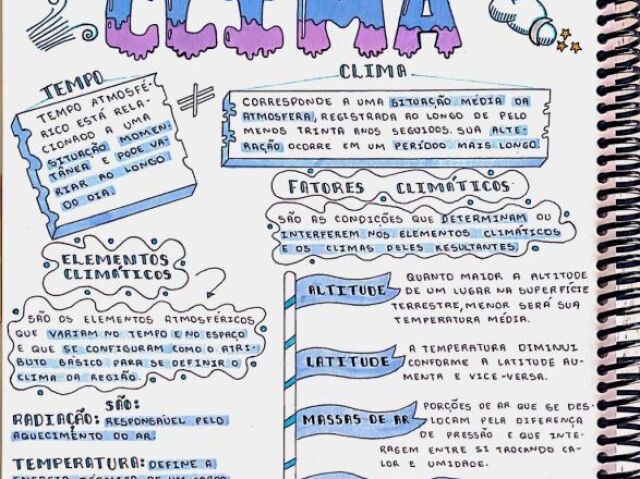 CLIMA
TEMPO
TEMPO ATMOSFÉ-
RICO ESTÁ RELA-
CIONADO A UMA
SITUAÇÃO MOMEN-
TÂNEA E PODE VA-
RIAR AO LONGO
DO DIA.
≠
CLIMA
CORRESPONDE A UMA SITUAÇÃO MÉDIA DA
ATMOSFERA, REGISTRADA AO LONGO DE PELO
MENOS TRINTA ANOS SEGUIDOS. SUA ALTE-
RAÇÃO OCORRE EM UM PERÍODO MAIS LONGO.
FATORES CLIMÁTICOS
SÃO AS CONDIÇÕES QUE DETERMINAM OU
INTERFEREM NOS ELEMENTOS CLIMÁTICOS
E OS CLIMAS DELES RESULTANTES.
ELEMENTOS
CLIMÁTICOS
SÃO OS ELEMENTOS ATMOSFÉRICOS
QUE VARIAM NO TEMPO E NO ESPAÇO
E QUE SE CONFIGURAM COMO O ATRI-
BUTO BÁSICO PARA SE DEFINIR O
CLIMA DA REGIÃO.
SÃO:
RADIAÇÃO: RESPONSÁVEL PELO
AQUECIMENTO DO AR.
TEMPERATURA: DEFINE A
ALTITUDE
QUANTO MAIOR A ALTITUDE
DE UM LUGAR NA SUPERFÍCIE
TERRESTRE, MENOR SERÁ SUA
TEMPERATURA MÉDIA.
LATITUDE
A TEMPERATURA DIMINUI
CONFORME A LATITUDE AU-
MENTA E VICE-VERSA.
MASSAS DE AR
PORÇÕES DE AR QUE SE DES-
LOCAM PELA DIFERENÇA
DE PRESSÃO E QUE INTE-
RAGEM ENTRE SI TROCANDO CA-
LOR E UMIDADE.